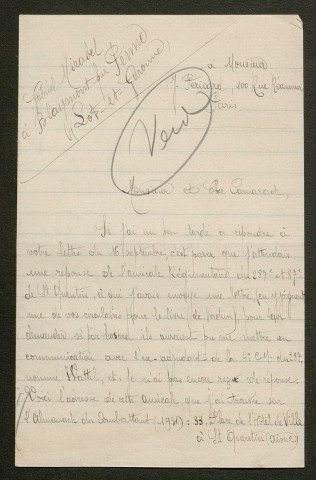 Gabriel Mirabel
à Beaumont du Perine
Lot-et-Garonne
à Monsieur
J. Péricard, 100 Rue Réaumur
Paris
Monsieur et Cher Camarade,
Si j'ai un peu tardé à répondre à
votre lettre du 16 septembre, c'est parce que j'attendais
une réponse de l'amicale Régimentaire du 287e et 87e
de St Quentin, à qui j'avais envoyé une lettre (en y joignant
une de vos circulaires pour le livre de Verdun) pour leur
demander si par hasard ils auraient pu me mettre en
communication avec l'ex-adjudant de la 6e C.M. du 287e
nommé Wattel, et je n'ai pas encore reçu de réponse.
Voici l'adresse de cette amicale que j'ai trouvée sur
l'Almanach du Combattant (1931) : 33, Place de l'Hôtel de Ville
à St Quentin (Aisne)